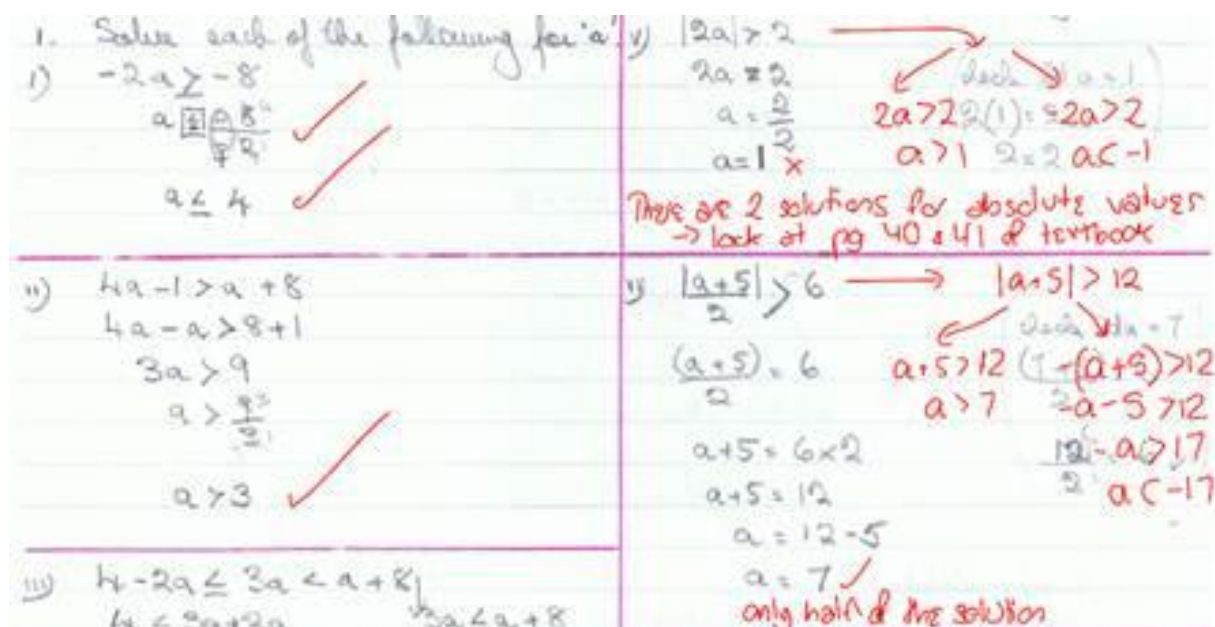 1. Solve each of the following for 'a'.
i) -2a ≥ -8
a ≤ -8/-2
a ≤ 4
ii) 4a-1 > a +8
4a-a > 8+1
3a > 9
a >
a > 3
iii) 4-2a ≤ 3a < a+8
4 ≤ 3a+2a
3a < a+8
v) |2a| > 2
2a = 2
a = 2/2
a = 1 ×
check a = 1
2(1) =
2 = 2
2a>2
a>1
-2a>2
a<-1
There are 2 solutions for absolute values
-> look at pg 40 & 41 of textbook
|a+5|/2 > 6
(a+5)/2 = 6
a+5 = 6×2
a+5 = 12
a = 12-5
a = 7
only half of the solution
|a+5| > 12
a+5>12
a>7
check a = 7
12/2
-(a+5)>12
-a-5>12
-a>17
a<-17